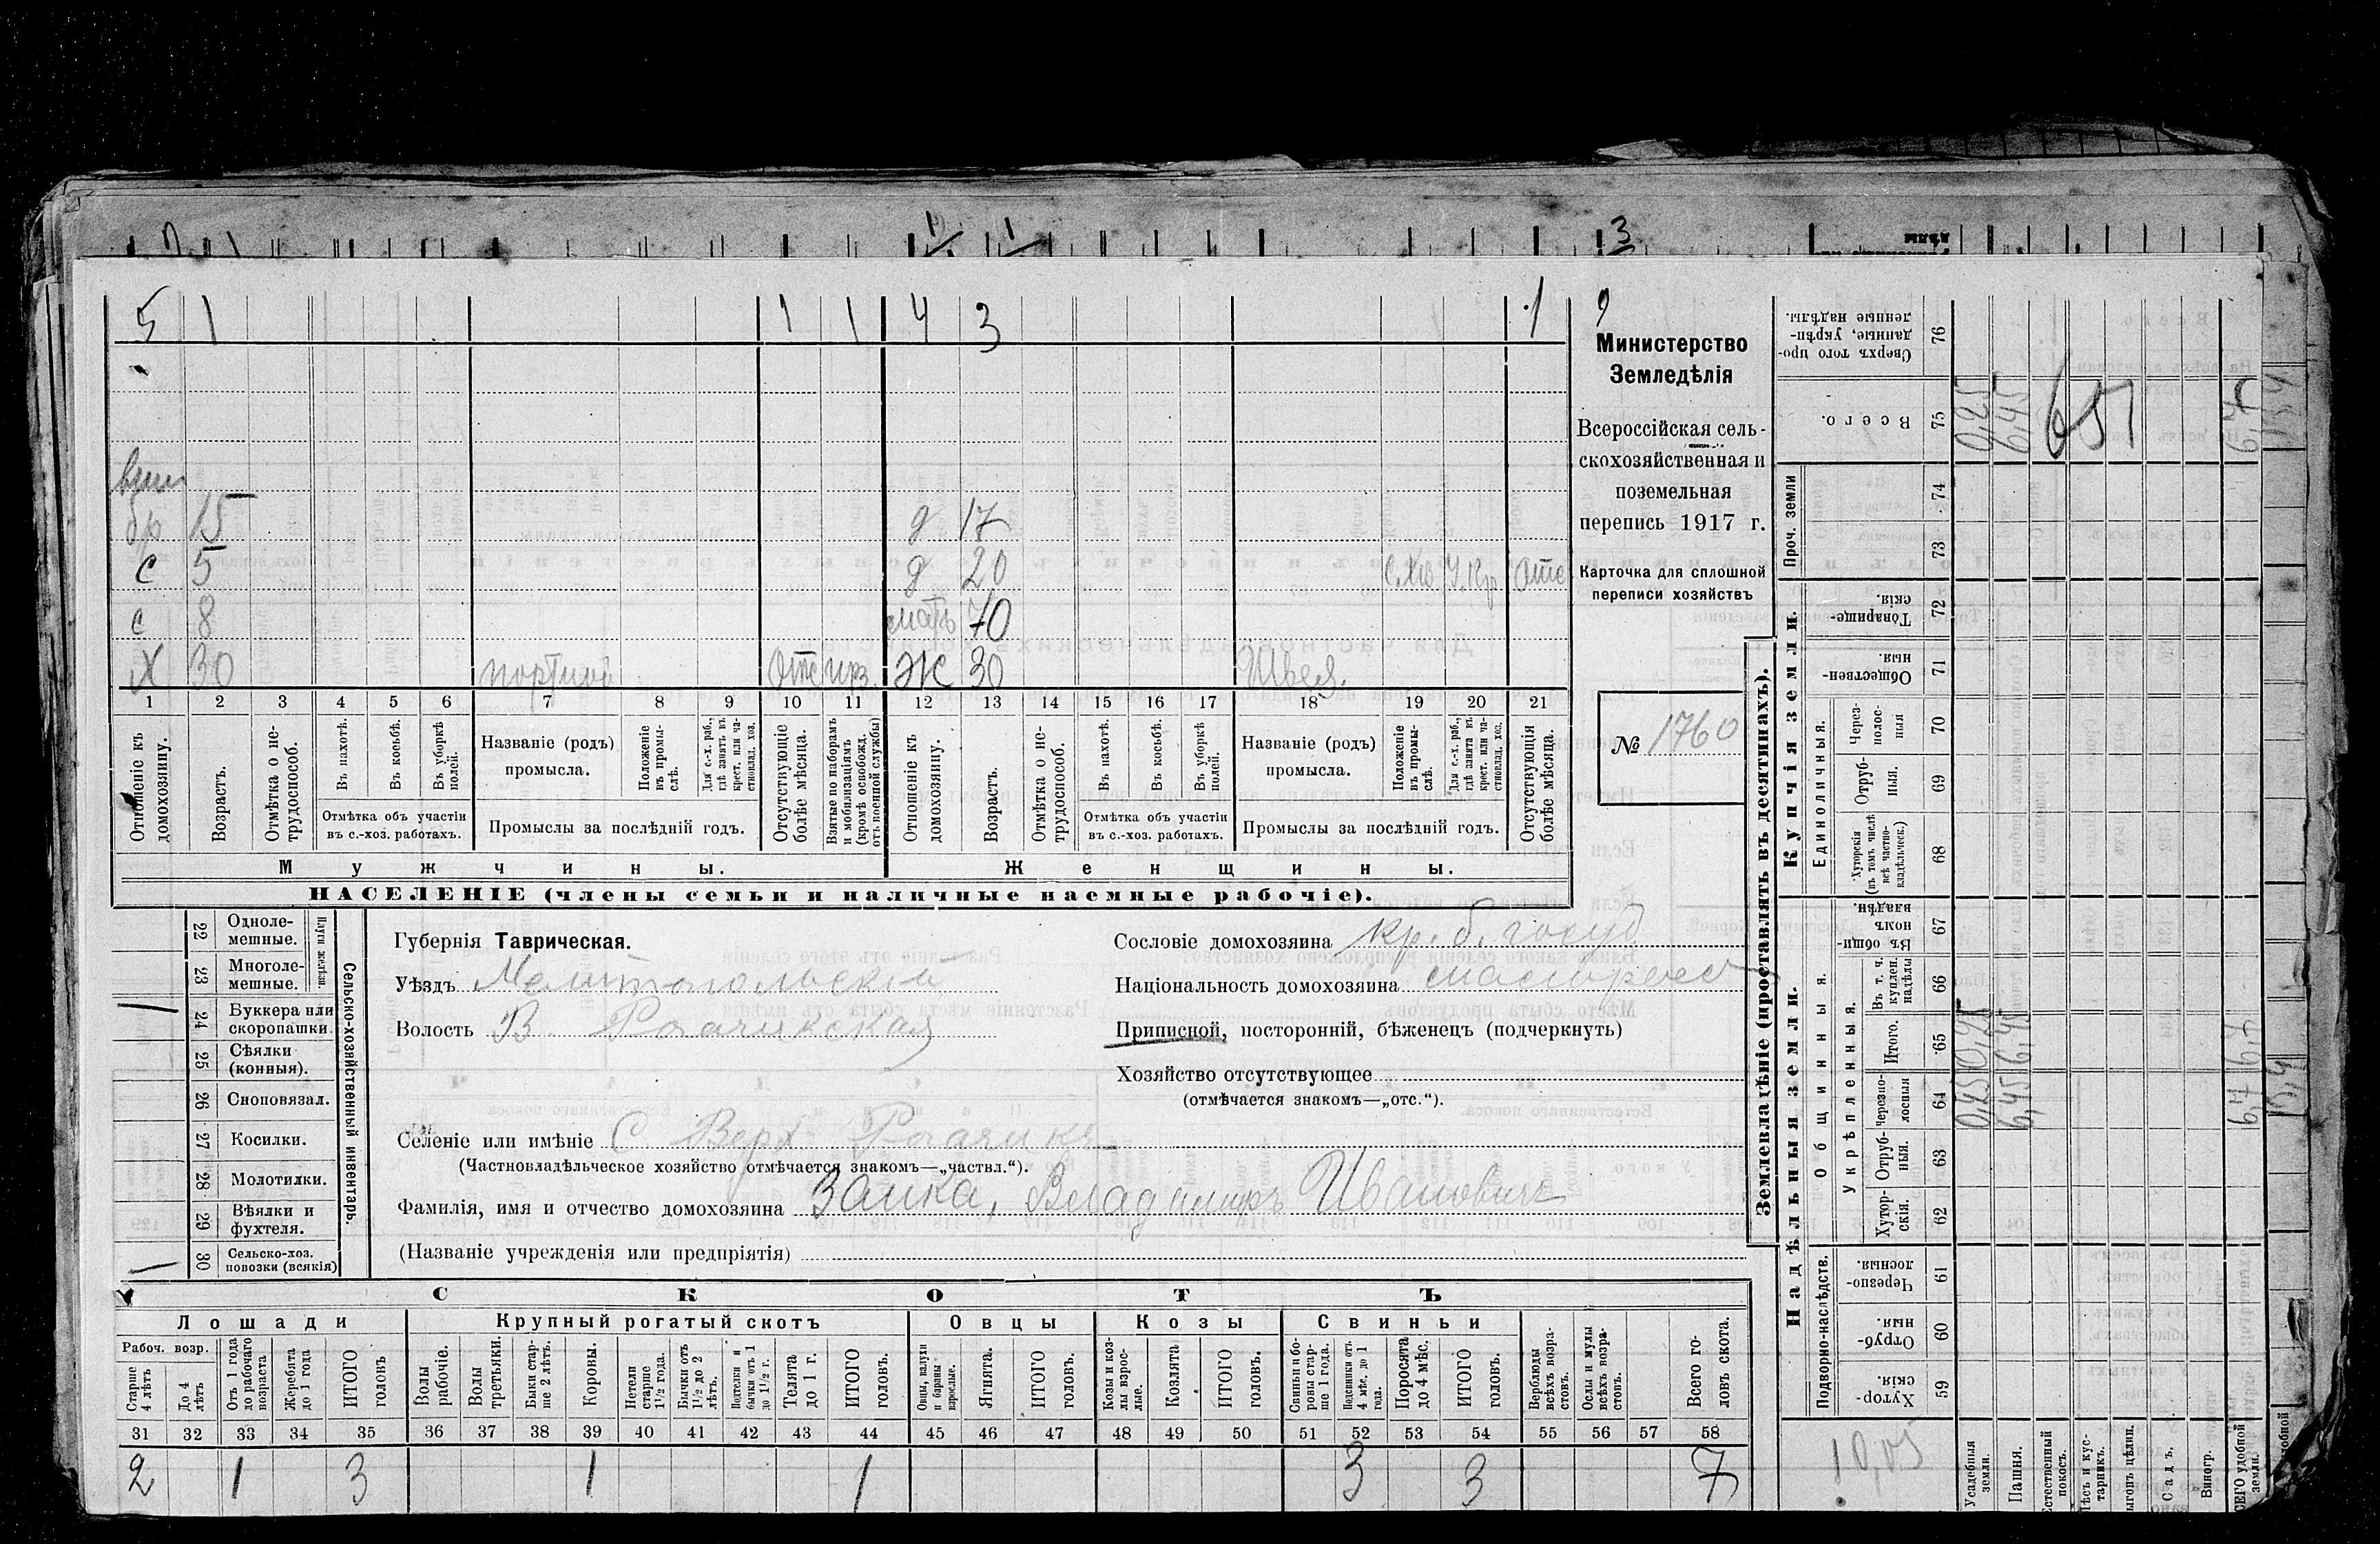 3
5 1 1 1 4 3 1 9
бр 15 д 17
с 5 д 20 С.Хо У.Кр Отс
с 8 мать 70
Х 30 портной Отс Ж 30 Швея.
1 2 3 4 5 6 7 8 9 10 11 12 13 14 15 16 17 18 19 20 21
Отношеніе къ домохозяину.
Возрастъ.
Отмѣтка о не-трудоспособ.
Въ пахотѣ.
Въ косьбѣ.
Въ уборкѣ полей.
Отмѣтка объ участіи
въ с.-хоз. работахъ.
Названіе (родъ)
промысла.
Положеніе въ промы-слѣ.
Для с.-х. раб., гдѣ занятъ въ крест. или ча-стновлад. хоз.
Промыслы за послѣдній годъ.
Отсутствующіе болѣе мѣсяца.
Взятые по наборамъ и мобилизаціямъ (кромѣ освобожд. отъ военной службы)
Отношеніе къ домохозяину.
Возрастъ.
Отмѣтка о не-трудоспособ.
Въ пахотѣ.
Въ косьбѣ.
Въ уборкѣ полей.
Отмѣтка объ участіи
въ с.-хоз. работахъ.
Названіе (родъ)
промысла.
Положеніе въ промы-слѣ.
Для с.-х. раб., гдѣ занята въ крест. или ча-стновлад. хоз.
Промыслы за послѣдній годъ.
Отсутствующія болѣе мѣсяца.
Мужчины. Женщины.
НАСЕЛЕНІЕ (члены семьи и наличные наемные рабочіе).
Министерство
Земледѣлія
Всероссійская сель-
скохозяйственная и
поземельная
перепись 1917 г.
Карточка для сплошной
переписи хозяйствъ
№ 1760
Сельско-хозяйственный инвентарь.
Плуги желѣзн.
22 Одноле-мешные.
23 Многоле-мешные.
24 Буккера или скоропашки. 1
25 Сѣялки (конныя).
26 Сноповязал.
27 Косилки.
28 Молотилки.
29 Вѣялки и фухтеля.
30 Сельско-хоз. повозки (всякія) 1
Губернія Таврическая.
Уѣздъ Мелитопольскій
Волость В. Рогачикская
Сословіе домохозяина кр. б. госуд
Національность домохозяина малоросс
Приписной, посторонній, бѣженецъ (подчеркнуть)
Хозяйство отсутствующее
(отмѣчается знакомъ—„отс.“).
Селеніе или имѣніе С Верх Рогачикъ
(Частновладѣльческое хозяйство отмѣчается знакомъ—„частвл.“).
Фамилія, имя и отчество домохозяина Заика, Владимиръ Ивановичъ
(Названіе учрежденія или предпріятія)
СКОТЪ
Лошади Крупный рогатый скотъ Овцы Козы Свиньи
Рабоч. возр.
Старше 4 лѣтъ
До 4 лѣтъ
Отъ 1 года до рабочаго возраста
Жеребята до 1 года
ИТОГО головъ
Волы рабочіе.
Волы третьяки.
Быки стар-ше 2 лѣтъ.
Коровы.
Нетели старше 1 1/2 года.
Бычки отъ 1 1/2 до 2 лѣтъ.
Подтелки и бычки отъ 1 до 1 1/2 г.
Телята до 1 г.
ИТОГО головъ.
Овцы, валухи и бараны взрослые.
Ягнята.
ИТОГО головъ.
Козы и коз-лы взрос-лые.
Козлята
ИТОГО головъ.
Свиньи и бо-ровы стар-ше 1 года.
Подсвинки отъ 4 мѣс. до 1 года.
Поросята до 4 мѣс.
ИТОГО головъ.
Верблюды всѣхъ возра-стовъ.
Ослы и мулы всѣхъ возра-стовъ.
Всего го-ловъ скота.
31 32 33 34 35 36 37 38 39 40 41 42 43 44 45 46 47 48 49 50 51 52 53 54 55 56 57 58
2 1 3 1 1 3 3 7
Землевладѣніе (проставлять въ десятинахъ).
Купчія земли.
Надѣльныя земли.
Сверхъ того про-данные, укрѣп-ленные надѣлы. 76
Всего. 75 0,25 6,45 651 6,7
Проч. земли 74
73
Товарище-скія. 72
Обществен-ныя. 71
Единоличныя.
Через-полос-ныя 70
Отруб-ныя. 69
Хуторскія (въ томъ числѣ всѣ частно-владѣльческ.) 68
Общинныя.
Въ общи-номъ владѣн. 67
Укрѣпленныя.
Въ т. ч. куплен. надѣлы 66
Итого. 65 0,25 6,45 6,7
Черезпо-лосныя 64 0,25 6,45 6,7
Отруб-ныя. 63
Хутор-скія. 62
Подворно-наслѣдств.
Черезпо-лосныя. 61
Отруб-ныя. 60
Хутор-скія. 59
Усадебныя земли.
Пашня.
Естественный покосъ.
Лѣсъ и кус-тарникъ.
Выгонъ цѣлин.
Садъ.
Виногр.
ВСЕГО удобной земли.